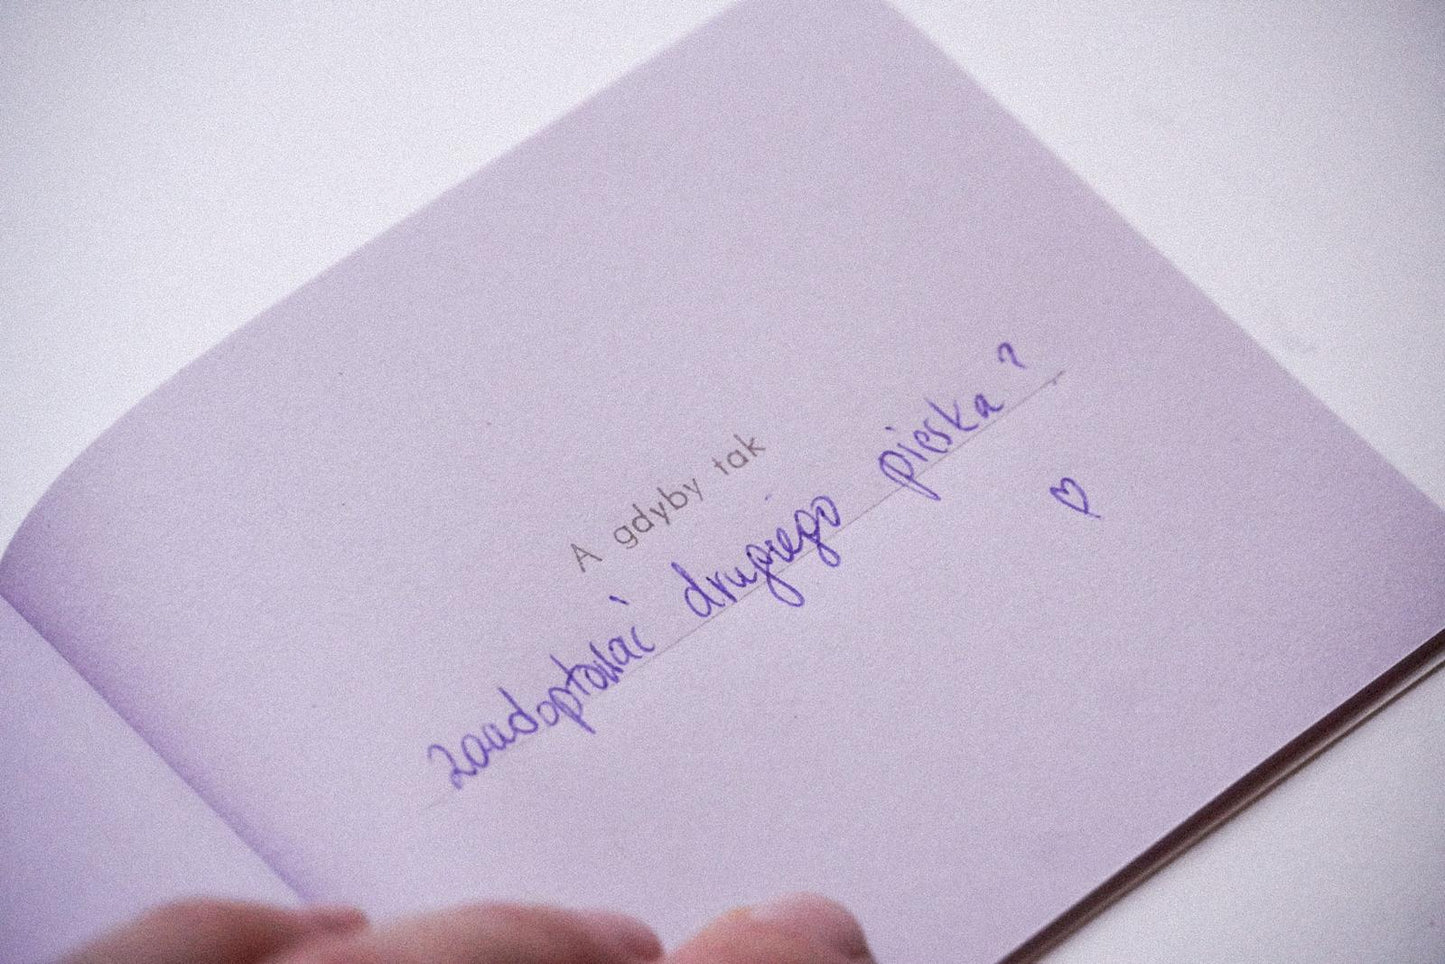 A gdyby tak
zaadoptować drugiego pieska?
♡